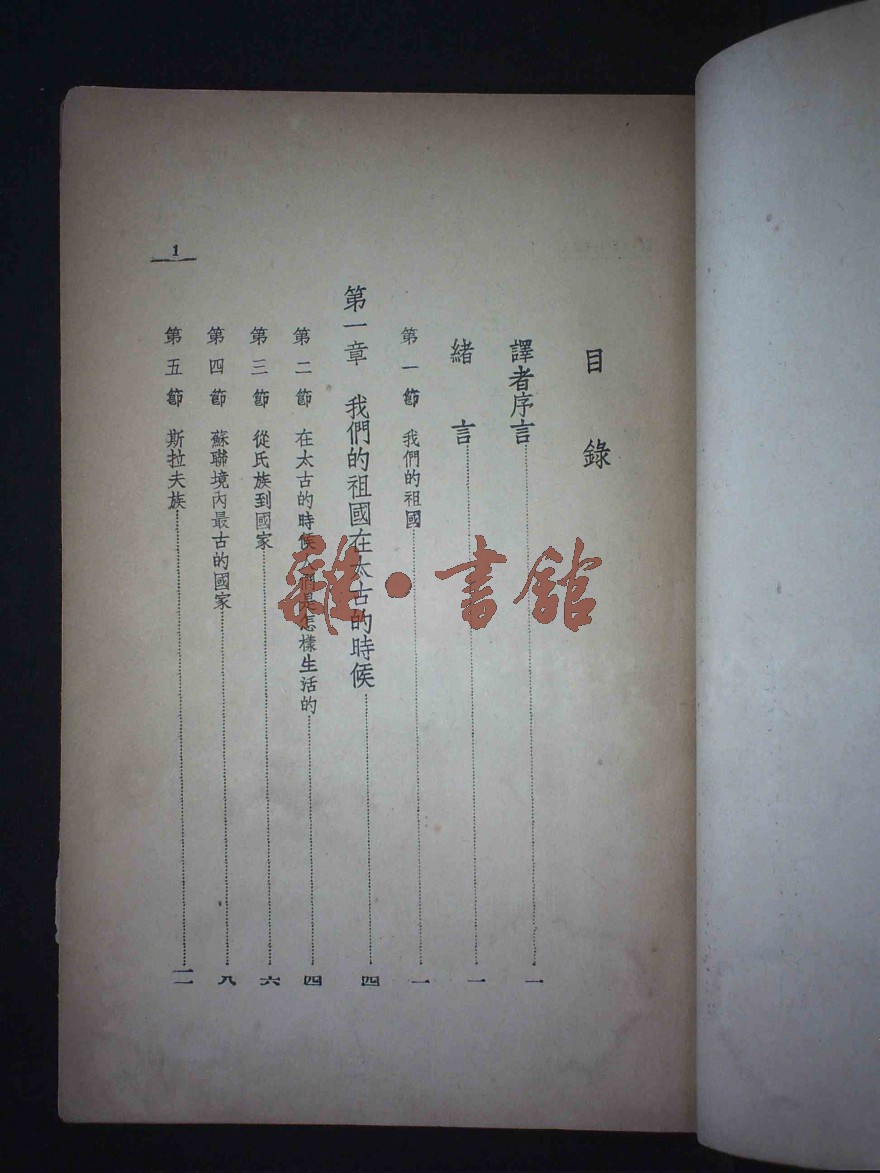 目錄
譯者序言…………一
緒言…………一
第一節 我們的祖國…………一
第一章 我們的祖國在太古的時候…………四
第二節 在太古的時候人們是怎樣生活的…………四
第三節 從氏族到國家…………六
第四節 蘇聯境內最古的國家…………九
第五節 斯拉夫族…………一二
1
雜·書館